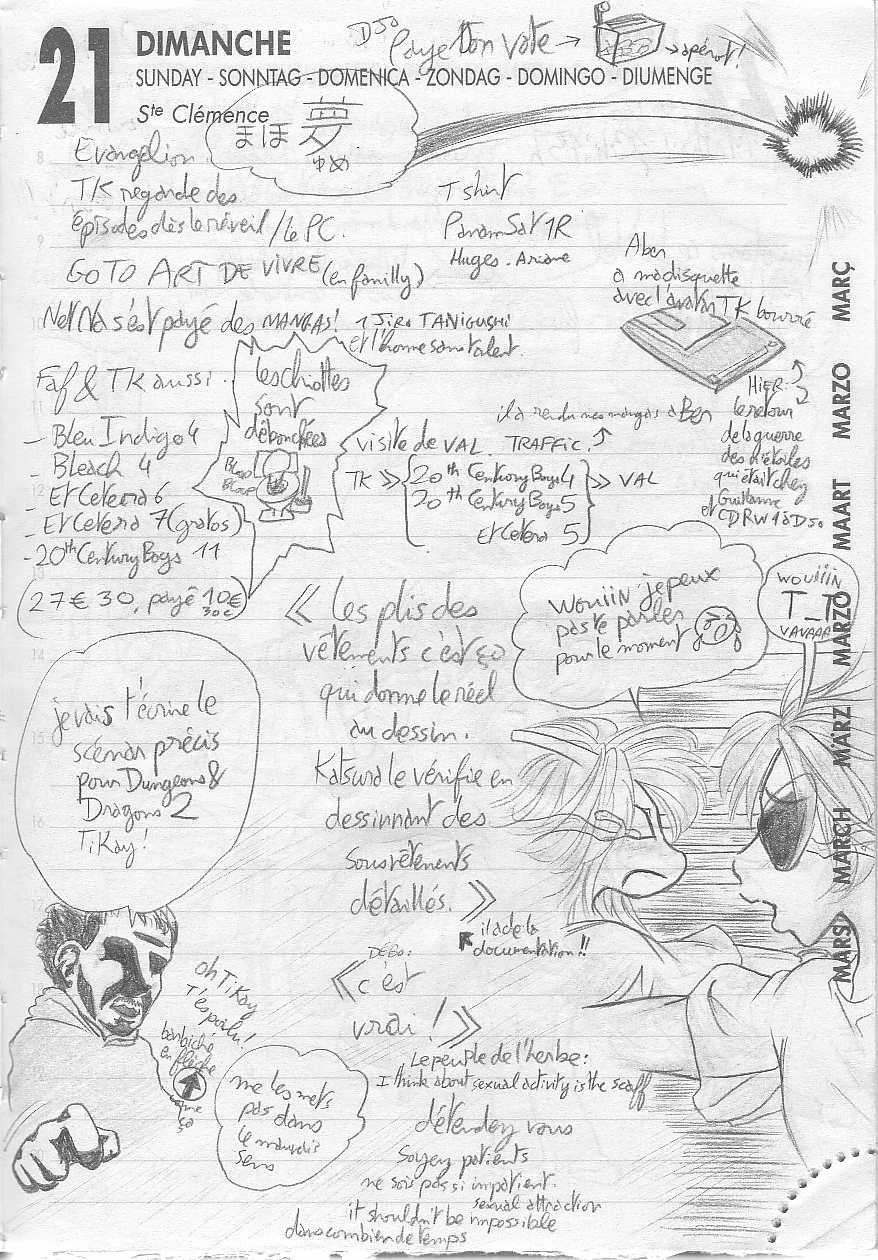 21 DIMANCHE
SUNDAY - SONNTAG - DOMENICA - ZONDAG - DOMINGO - DIUMENGE
Ste Clémence
D50
Paye ton vote → → apéro!
まほ 夢
ゆめ
Evangelion.
TK regarde des
épisodes dès le réveil / le PC.
GOTO ART DE VIVRE (en familly)
T shirt
PanamSat 1R
Huges. Ariane
Aben
a ma disquette
avec l'avatar TK bourré
Net Na s'est payé des MANGAS! 1 JIRO TANIGUSHI
et l'homme sans talent.
Faf & TK aussi.
- Bleu Indigo 4
Bleach 4
- Et Cetera 6
- Et Cetera 7 (gratos)
- 20th Century Boys 11
27€30, payé 10€
30c
les chiottes
sont
débouchées
Blop
Blop
il a rendu mes mangas à Ben
visite de VAL. TRAFFIC.
TK >> 20th Century Boys 4
20th Century Boys 5
Et Cetera 5
>> VAL
HIER:
le retour
de la guerre
des n'étoiles
qui était chez
Guillaume
et CDRW 1 à D50
« Les plis des
vêtements c'est ça
qui donne le réel
au dessin.
Katsura le vérifie en
dessinnant des
sous vêtements
détaillés. »
il a de la
documentation!!
DÉBO:
« c'est
vrai! »
Wouiiin je peux
pas te parler
pour le moment
WOUIIIN
T_T
je vais t'écrire le
scénar précis
pour Dungeons &
Dragons 2
TiKay!
oh TiKay
T'es poilu!
barbiche
en flèche
comme
ça
me les mets
pas dans
le mauvais
sens
Le peuple de l'herbe:
I think about sexual activity is the
détendez vous
Soyez patients
ne sois pas si impatient.
sexual attraction
it shouldn't be impossible
dans combien de temps
MARS - MARCH - MÄRZ - MARZO - MAART - MARZO - MARÇ